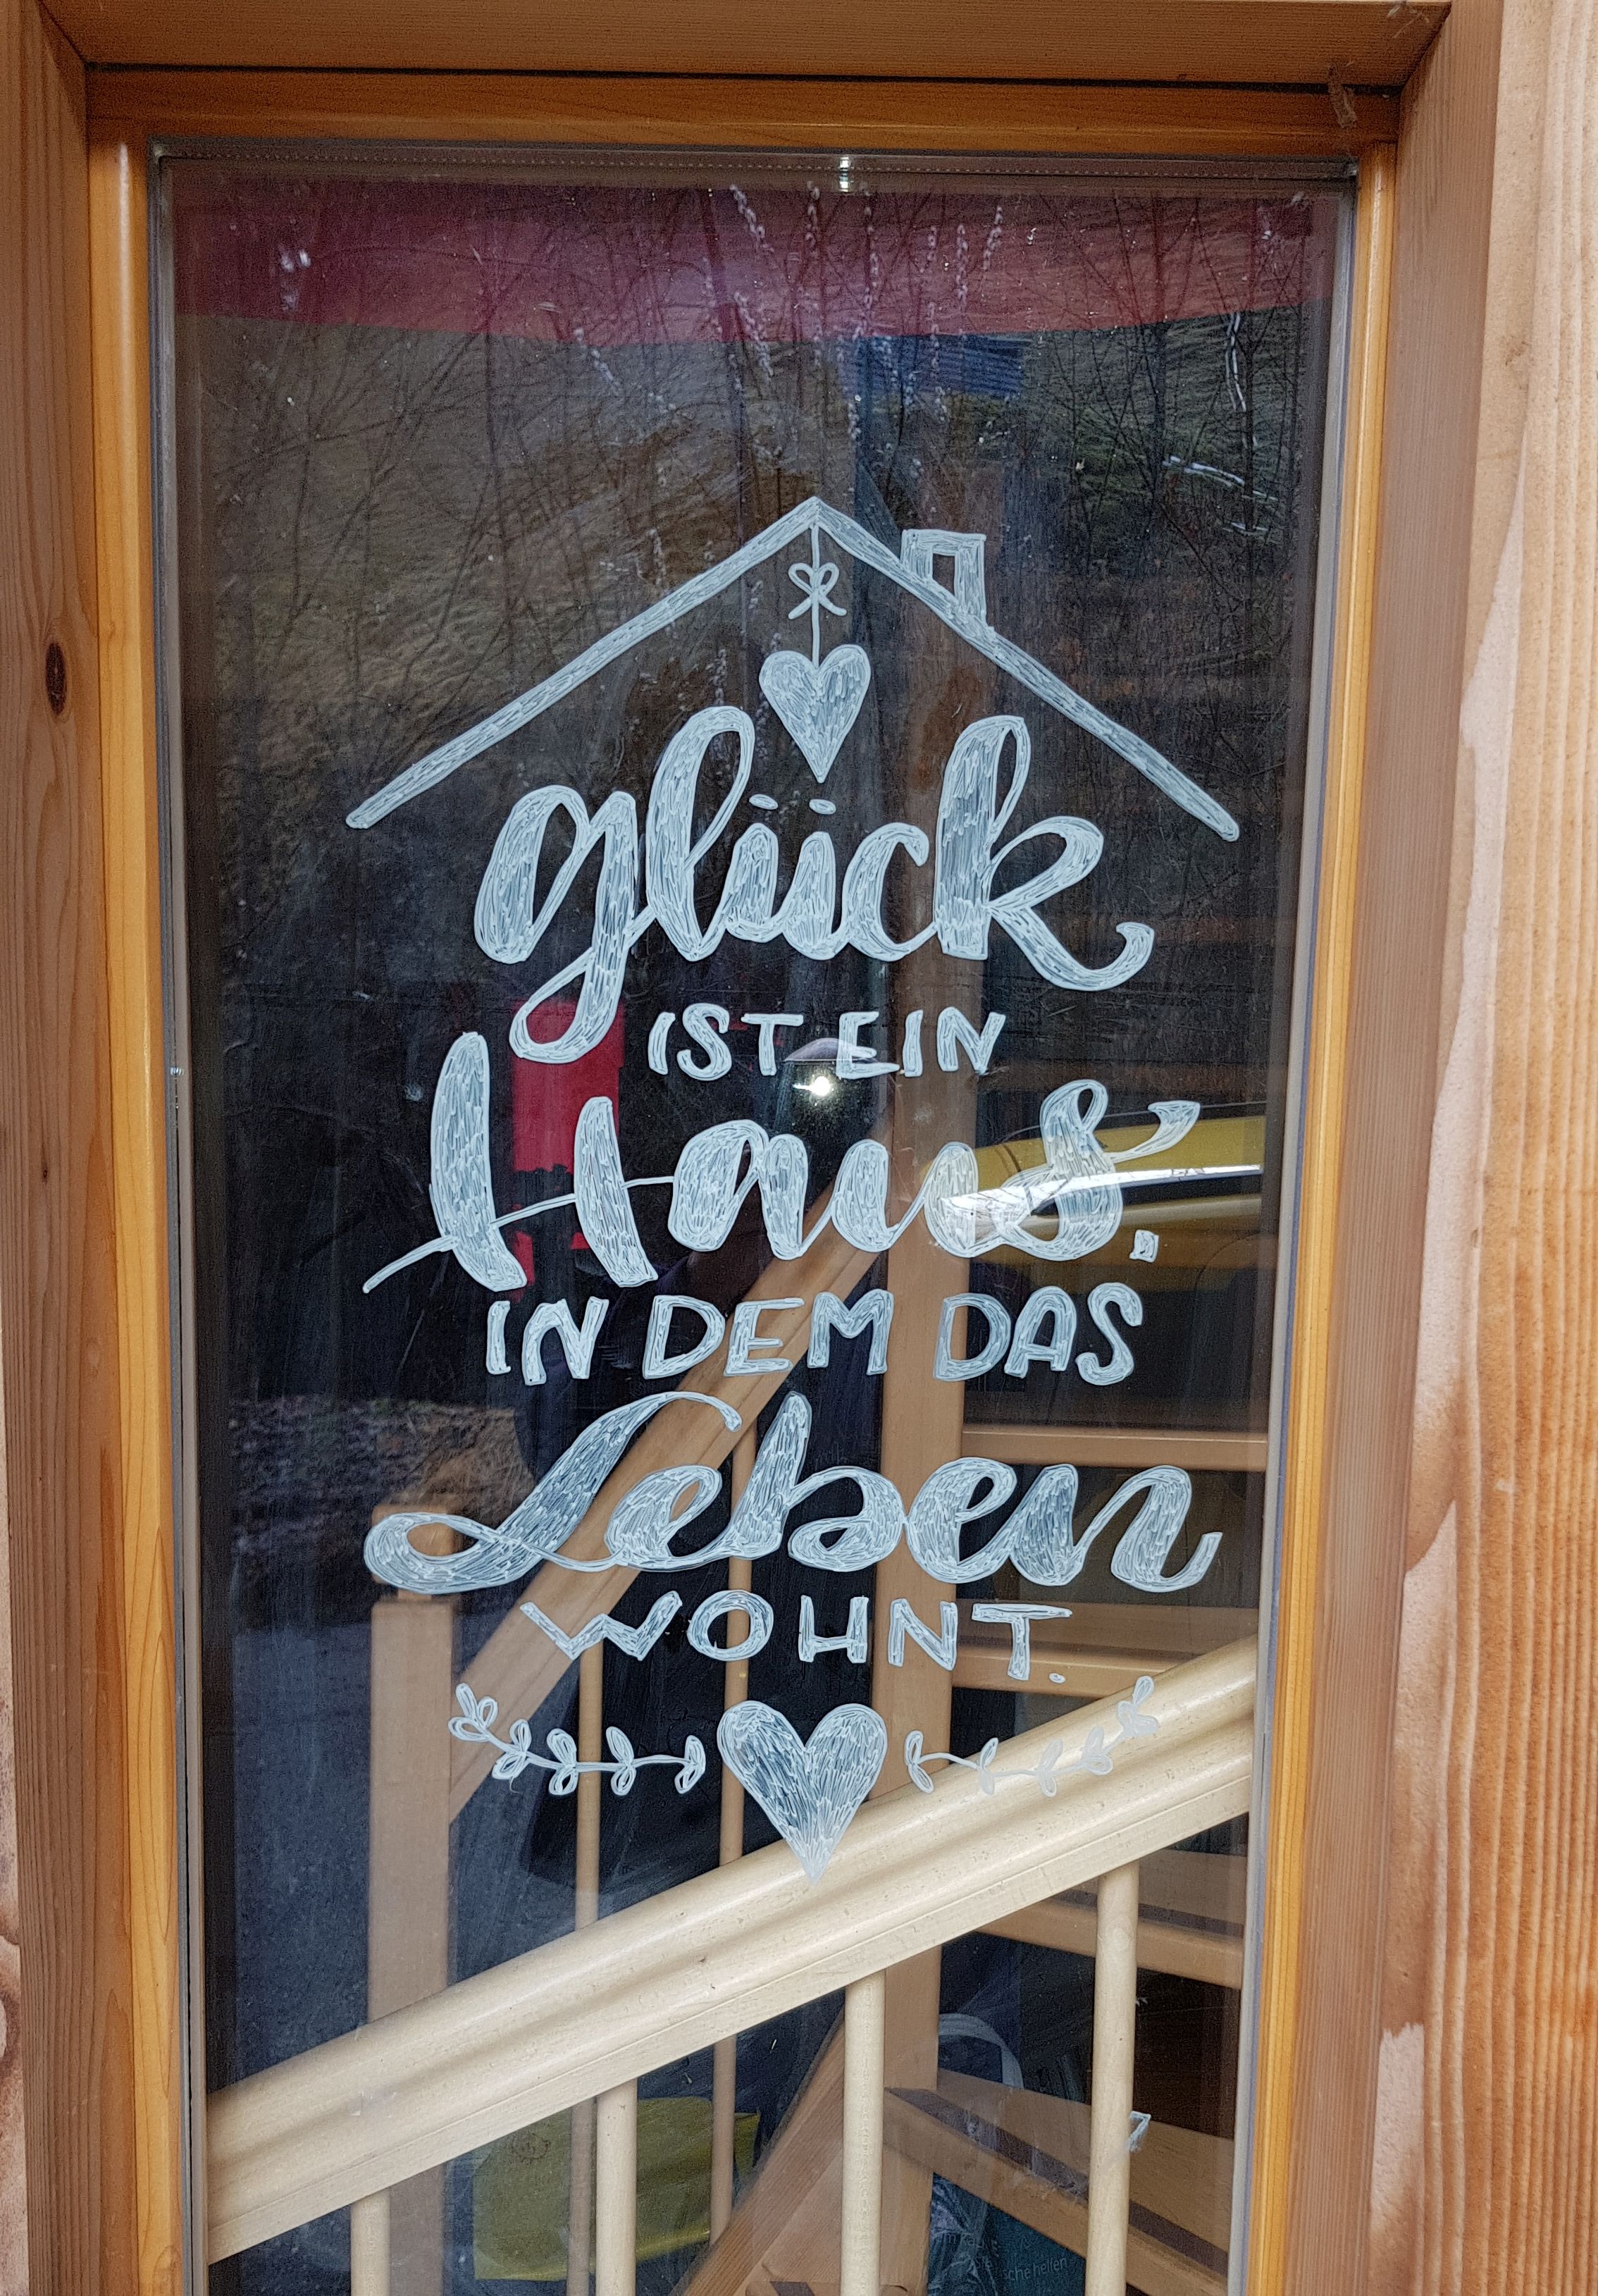 glück
IST EIN
Haus.
IN DEM DAS
Leben
WOHNT.